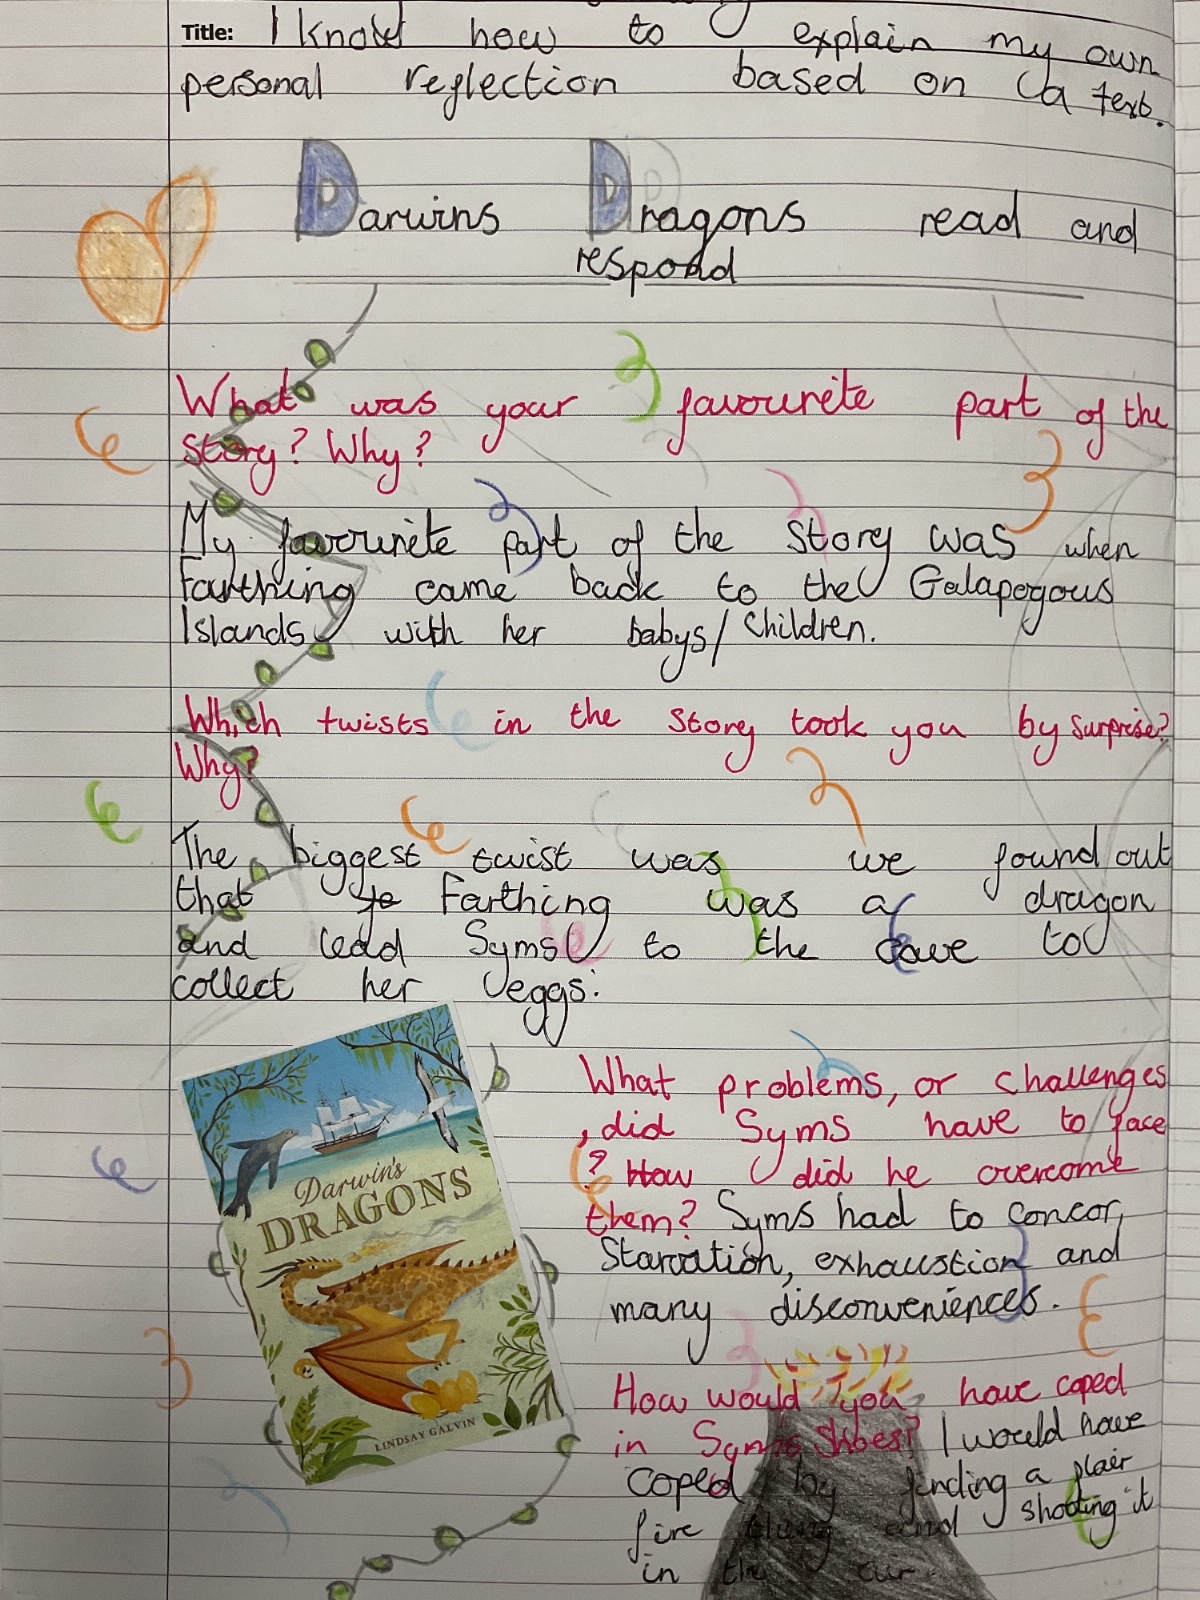 Title: I know how to explain my own
personal reflection based on a text.
Darwins Dragons read and
respond
What was your favourite part of the
story? Why?
My favourite part of the story was when
Farthing came back to the Galapogous
Islands with her babys/children.
Which twists in the story took you by surprise?
Why?
The biggest twist was we found out
that Farthing was a dragon
and lead Syms to the cave to
collect her eggs.
Darwin's
DRAGONS
LINDSAY GALVIN
What problems, or challenges
, did Syms have to face
? How did he overcome
them? Syms had to concor,
Starvation, exhaustion and
many disconveniences.
How would you have coped
in Syms shoes? I would have
coped by finding a flair
fire thing and shooting it
in the air.